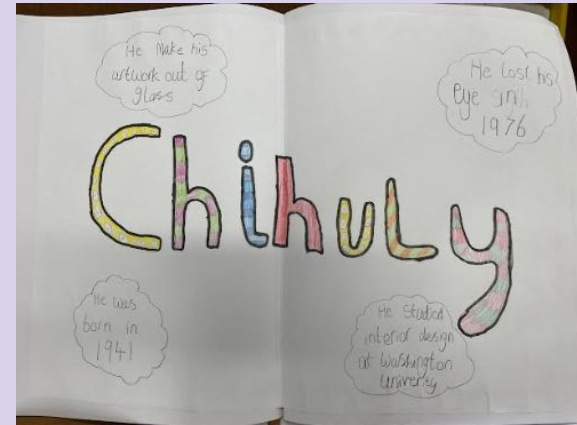 He Make his
artwork out of
glass
He lost his
eye sinh
1976
Chihuly
He was
born in
1941
He Studied
interior design
at Washington
Univeresy